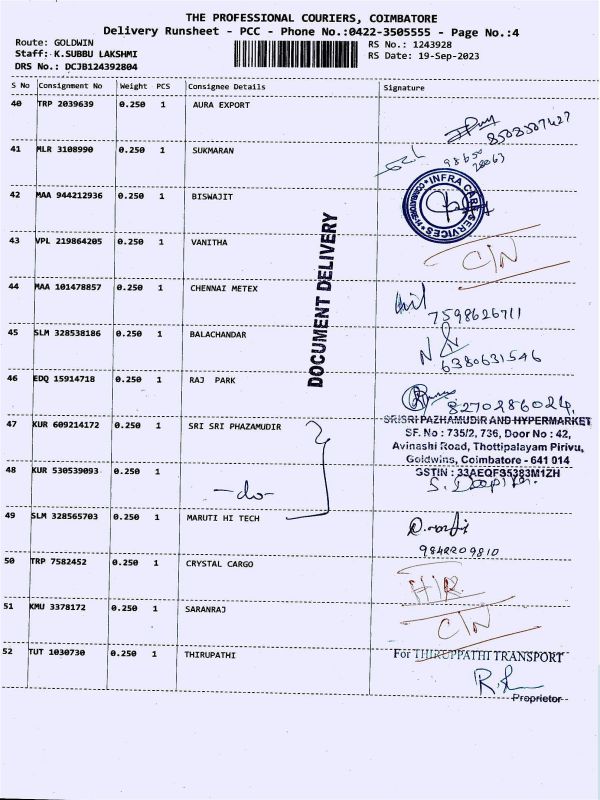 THE PROFESSIONAL COURIERS, COIMBATORE
Delivery Runsheet - PCC - Phone No.:0422-3505555 - Page No.:4
Route: GOLDWIN
Staff: K.SUBBU LAKSHMI
DRS No.: DCJB124392804
RS No.: 1243928
RS Date: 19-Sep-2023
S No Consignment No Weight PCS Consignee Details Signature
40 TRP 2039639 0.250 1 AURA EXPORT
8503507427
41 MLR 3108990 0.250 1 SUKMARAN
98650
28063
42 MAA 944212936 0.250 1 BISWAJIT
INFRA CARE SERVICES COIMBATORE
43 VPL 219864205 0.250 1 VANITHA
C/N
44 MAA 101478857 0.250 1 CHENNAI METEX
7598626711
45 SLM 328538186 0.250 1 BALACHANDAR
6380631546
46 EDQ 15914718 0.250 1 RAJ PARK
8270286024
47 KUR 609214172 0.250 1 SRI SRI PHAZAMUDIR
SRISRI PAZHAMUDIR AND HYPERMARKET
SF. No : 735/2, 736, Door No : 42,
Avinashi Road, Thottipalayam Pirivu,
Goldwins, Coimbatore - 641 014
GSTIN : 33AEQFS5383M1ZH
48 KUR 530539093 0.250 1 -do-
49 SLM 328565703 0.250 1 MARUTI HI TECH
9842209810
50 TRP 7582452 0.250 1 CRYSTAL CARGO
H/R
51 KMU 3378172 0.250 1 SARANRAJ
C/N
52 TUT 1030730 0.250 1 THIRUPATHI
For THIRUPPATHI TRANSPORT
Proprietor
DOCUMENT DELIVERY